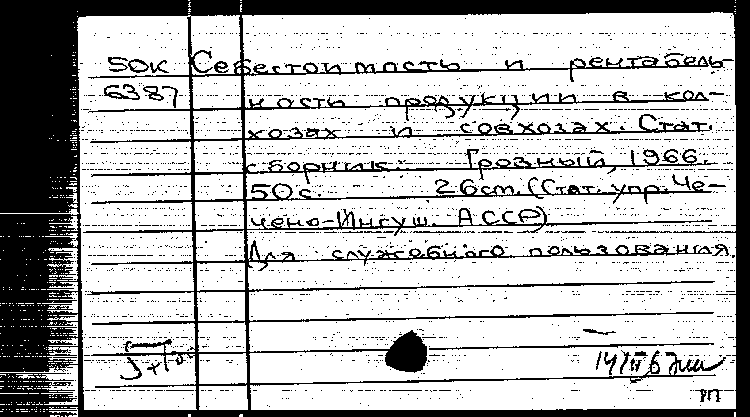 50К Себестоимость и рентабель-
6387 ность продукции в кол-
хозах и совхозах. Стат.
сборник. Грозный, 1966.
50с. 26cm. (Стат. упр. Че-
чено-Ингуш. АССР)
Для служебного пользования.